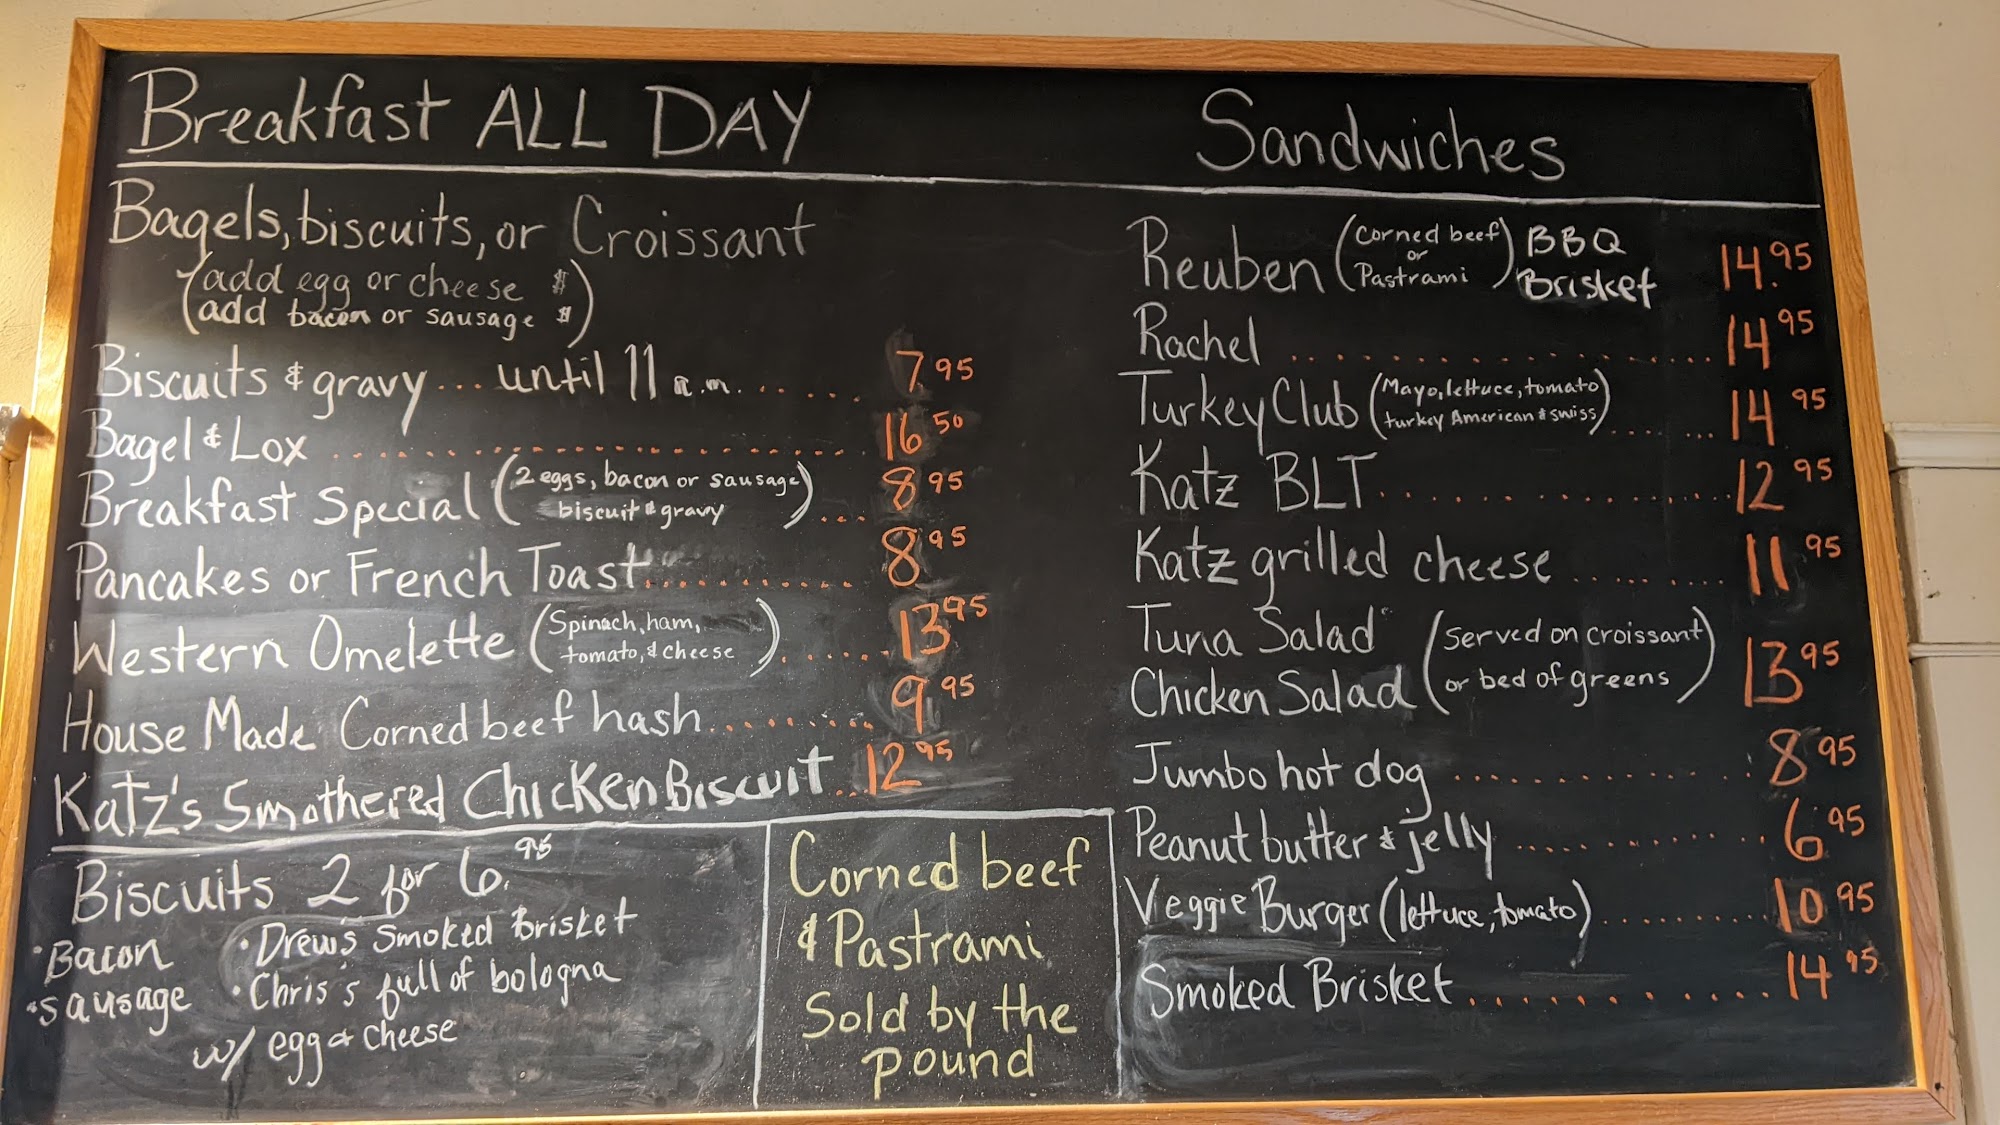 Breakfast ALL DAY
Bagels, biscuits, or Croissant
(add egg or cheese $
add bacon or sausage $)
Biscuits & gravy... until 11 a.m. ..... 7.95
Bagel & Lox ..... 16.50
Breakfast Special (2 eggs, bacon or sausage
biscuit & gravy) ... 8.95
Pancakes or French Toast ..... 8.95
Western Omelette (Spinach, ham,
tomato, & cheese) ..... 13.95
House Made Corned beef hash ..... 9.95
Katz's Smothered Chicken Biscuit .. 12.95
Biscuits 2 for 6.95
• Bacon
• Sausage
• Drew's Smoked Brisket
• Chris's full of bologna
w/ egg & cheese
Corned beef
& Pastrami
Sold by the
pound
Sandwiches
Reuben (Corned beef or Pastrami) BBQ Brisket 14.95
Rachel ..... 14.95
Turkey Club (Mayo, lettuce, tomato
turkey American & swiss) ..... 14.95
Katz BLT ..... 12.95
Katz grilled cheese ..... 11.95
Tuna Salad
Chicken Salad (Served on croissant
or bed of greens) 13.95
Jumbo hot dog ..... 8.95
Peanut butter & jelly ..... 6.95
Veggie Burger (lettuce, tomato) ..... 10.95
Smoked Brisket ..... 14.95